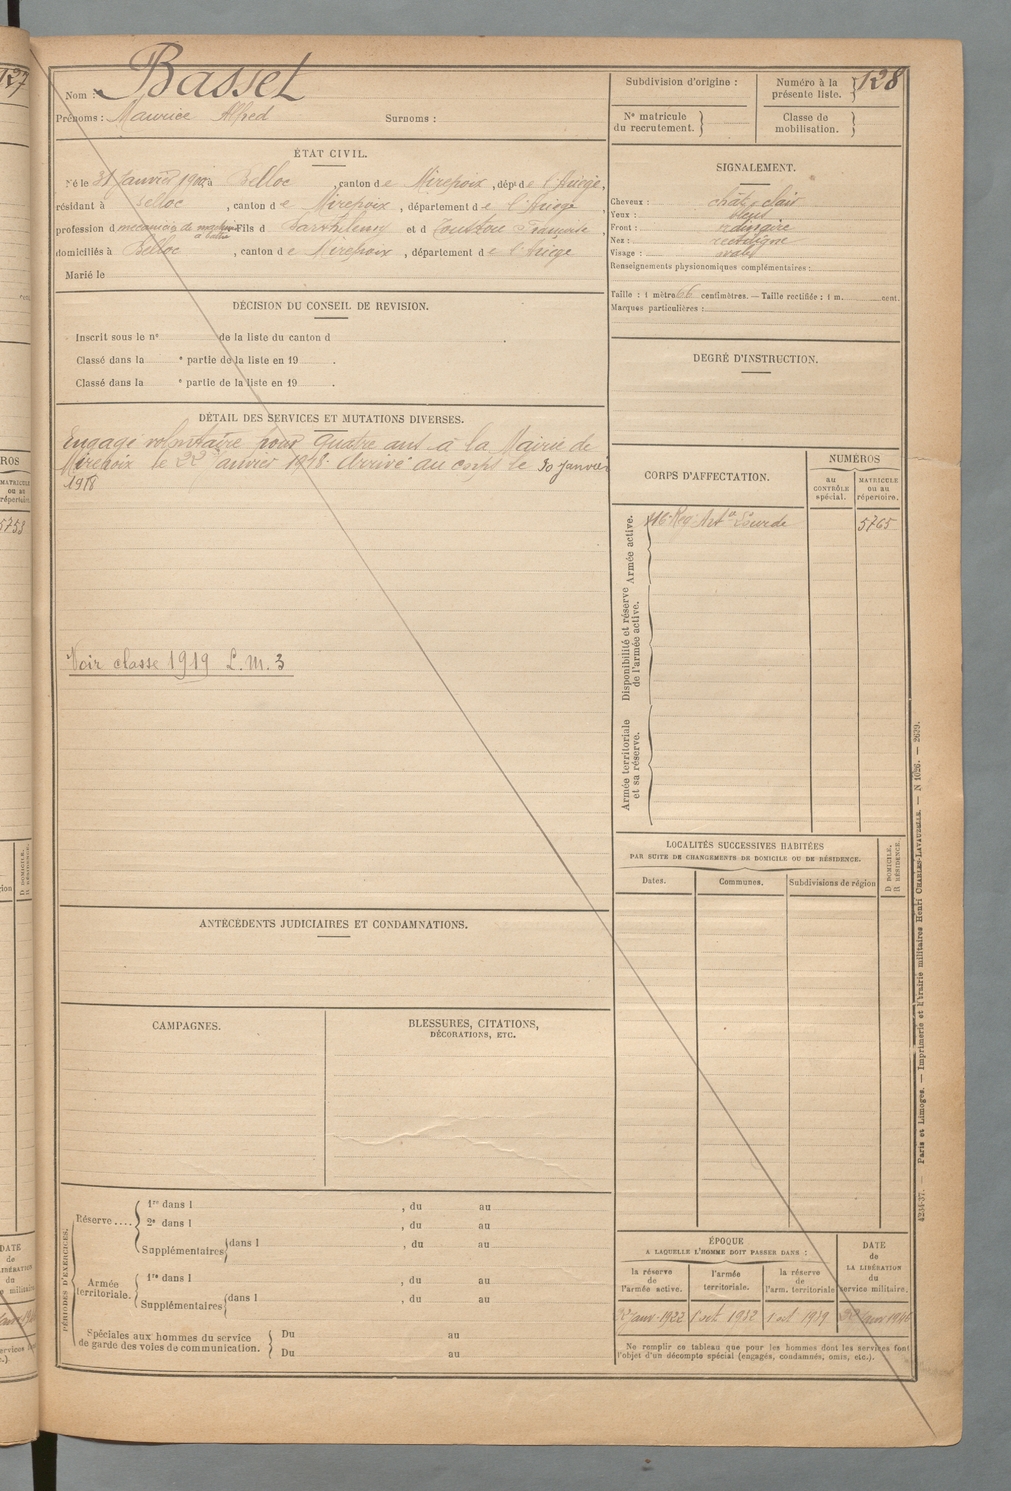 127
Nom : Basset
Prénoms : Maurice Alfred Surnoms :
Subdivision d'origine :
Numéro à la présente liste. } 128
N° matricule du recrutement. }
Classe de mobilisation. }
ÉTAT CIVIL.
Né le 31 Janvier 1900, à Belloc, canton de Mirepoix, dépt de l'Ariège,
résidant à Belloc, canton de Mirepoix, département de l'Ariège
profession d mécanicien de machine à battre Fils d Barthélemy et d Toustou Françoise,
domiciliés à Belloc, canton de Mirepoix, département de l'Ariège
Marié le
SIGNALEMENT.
Cheveux : chât. clair
Yeux : bleus
Front : ordinaire
Nez : rectiligne
Visage : ovale
Renseignements physionomiques complémentaires :
Taille : 1 mètre 66 centimètres. — Taille rectifiée : 1 m. cent.
Marques particulières :
DÉCISION DU CONSEIL DE REVISION.
Inscrit sous le n° de la liste du canton d
Classé dans la e partie de la liste en 19 .
Classé dans la e partie de la liste en 19 .
DEGRÉ D'INSTRUCTION.
DÉTAIL DES SERVICES ET MUTATIONS DIVERSES.
Engagé volontaire pour quatre ans à la Mairie de
Mirepoix le 22 Janvier 1918. Arrivé au corps le 30 janvier
1918
Voir classe 1919 L. M. 3
CORPS D'AFFECTATION.
NUMÉROS
au CONTRÔLE spécial.
MATRICULE ou au répertoire.
Armée active.
116e Rég. Art. Lourde 5765
Disponibilité et réserve de l'armée active.
Armée territoriale et sa réserve.
LOCALITÉS SUCCESSIVES HABITÉES
PAR SUITE DE CHANGEMENTS DE DOMICILE OU DE RÉSIDENCE.
Dates.
Communes.
Subdivisions de région
D DOMICILE.
R RÉSIDENCE.
ANTÉCÉDENTS JUDICIAIRES ET CONDAMNATIONS.
CAMPAGNES.
BLESSURES, CITATIONS,
DÉCORATIONS, ETC.
PÉRIODES D'EXERCICES.
Réserve.... { 1re dans l , du au
2e dans l , du au
Supplémentaires { dans l , du au
Armée territoriale. { 1re dans l , du au
Supplémentaires { dans l , du au
Spéciales aux hommes du service de garde des voies de communication. { Du au
Du au
ÉPOQUE
A LAQUELLE L'HOMME DOIT PASSER DANS :
la réserve de l'armée active.
l'armée territoriale.
la réserve de l'arm. territoriale
DATE de LA LIBÉRATION du service militaire.
22 Janv. 1922
1 oct 1932
1 oct 1939
22 Janv 1946
Ne remplir ce tableau que pour les hommes dont les services font
l'objet d'un décompte spécial (engagés, condamnés, omis, etc.).
4234-37. — Paris et Limoges. — Imprimerie et librairie militaires Henri CHARLES-LAVAUZELLE. — N 1026. — 2629.
ROS
MATRICULE
ou au
répertoire
5753